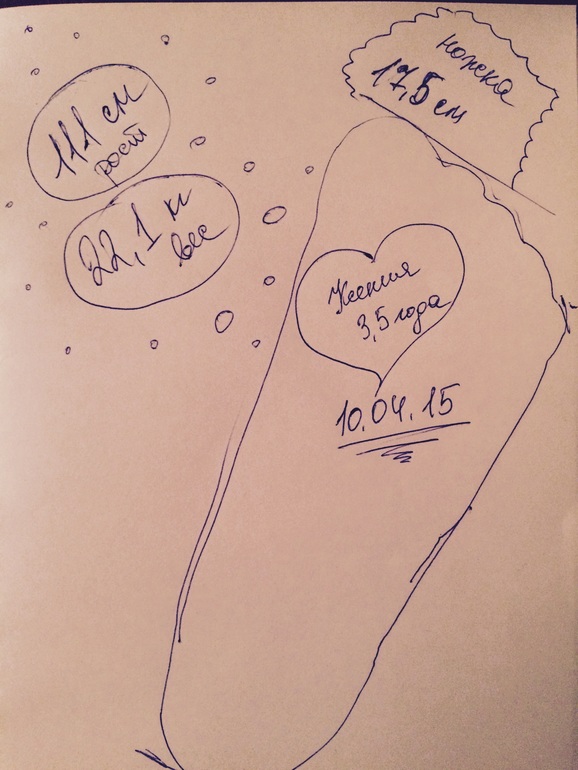 ножка
17,5 см
111 см
рост
22,1 кг
вес
Ксения
3,5 года
10.04.15